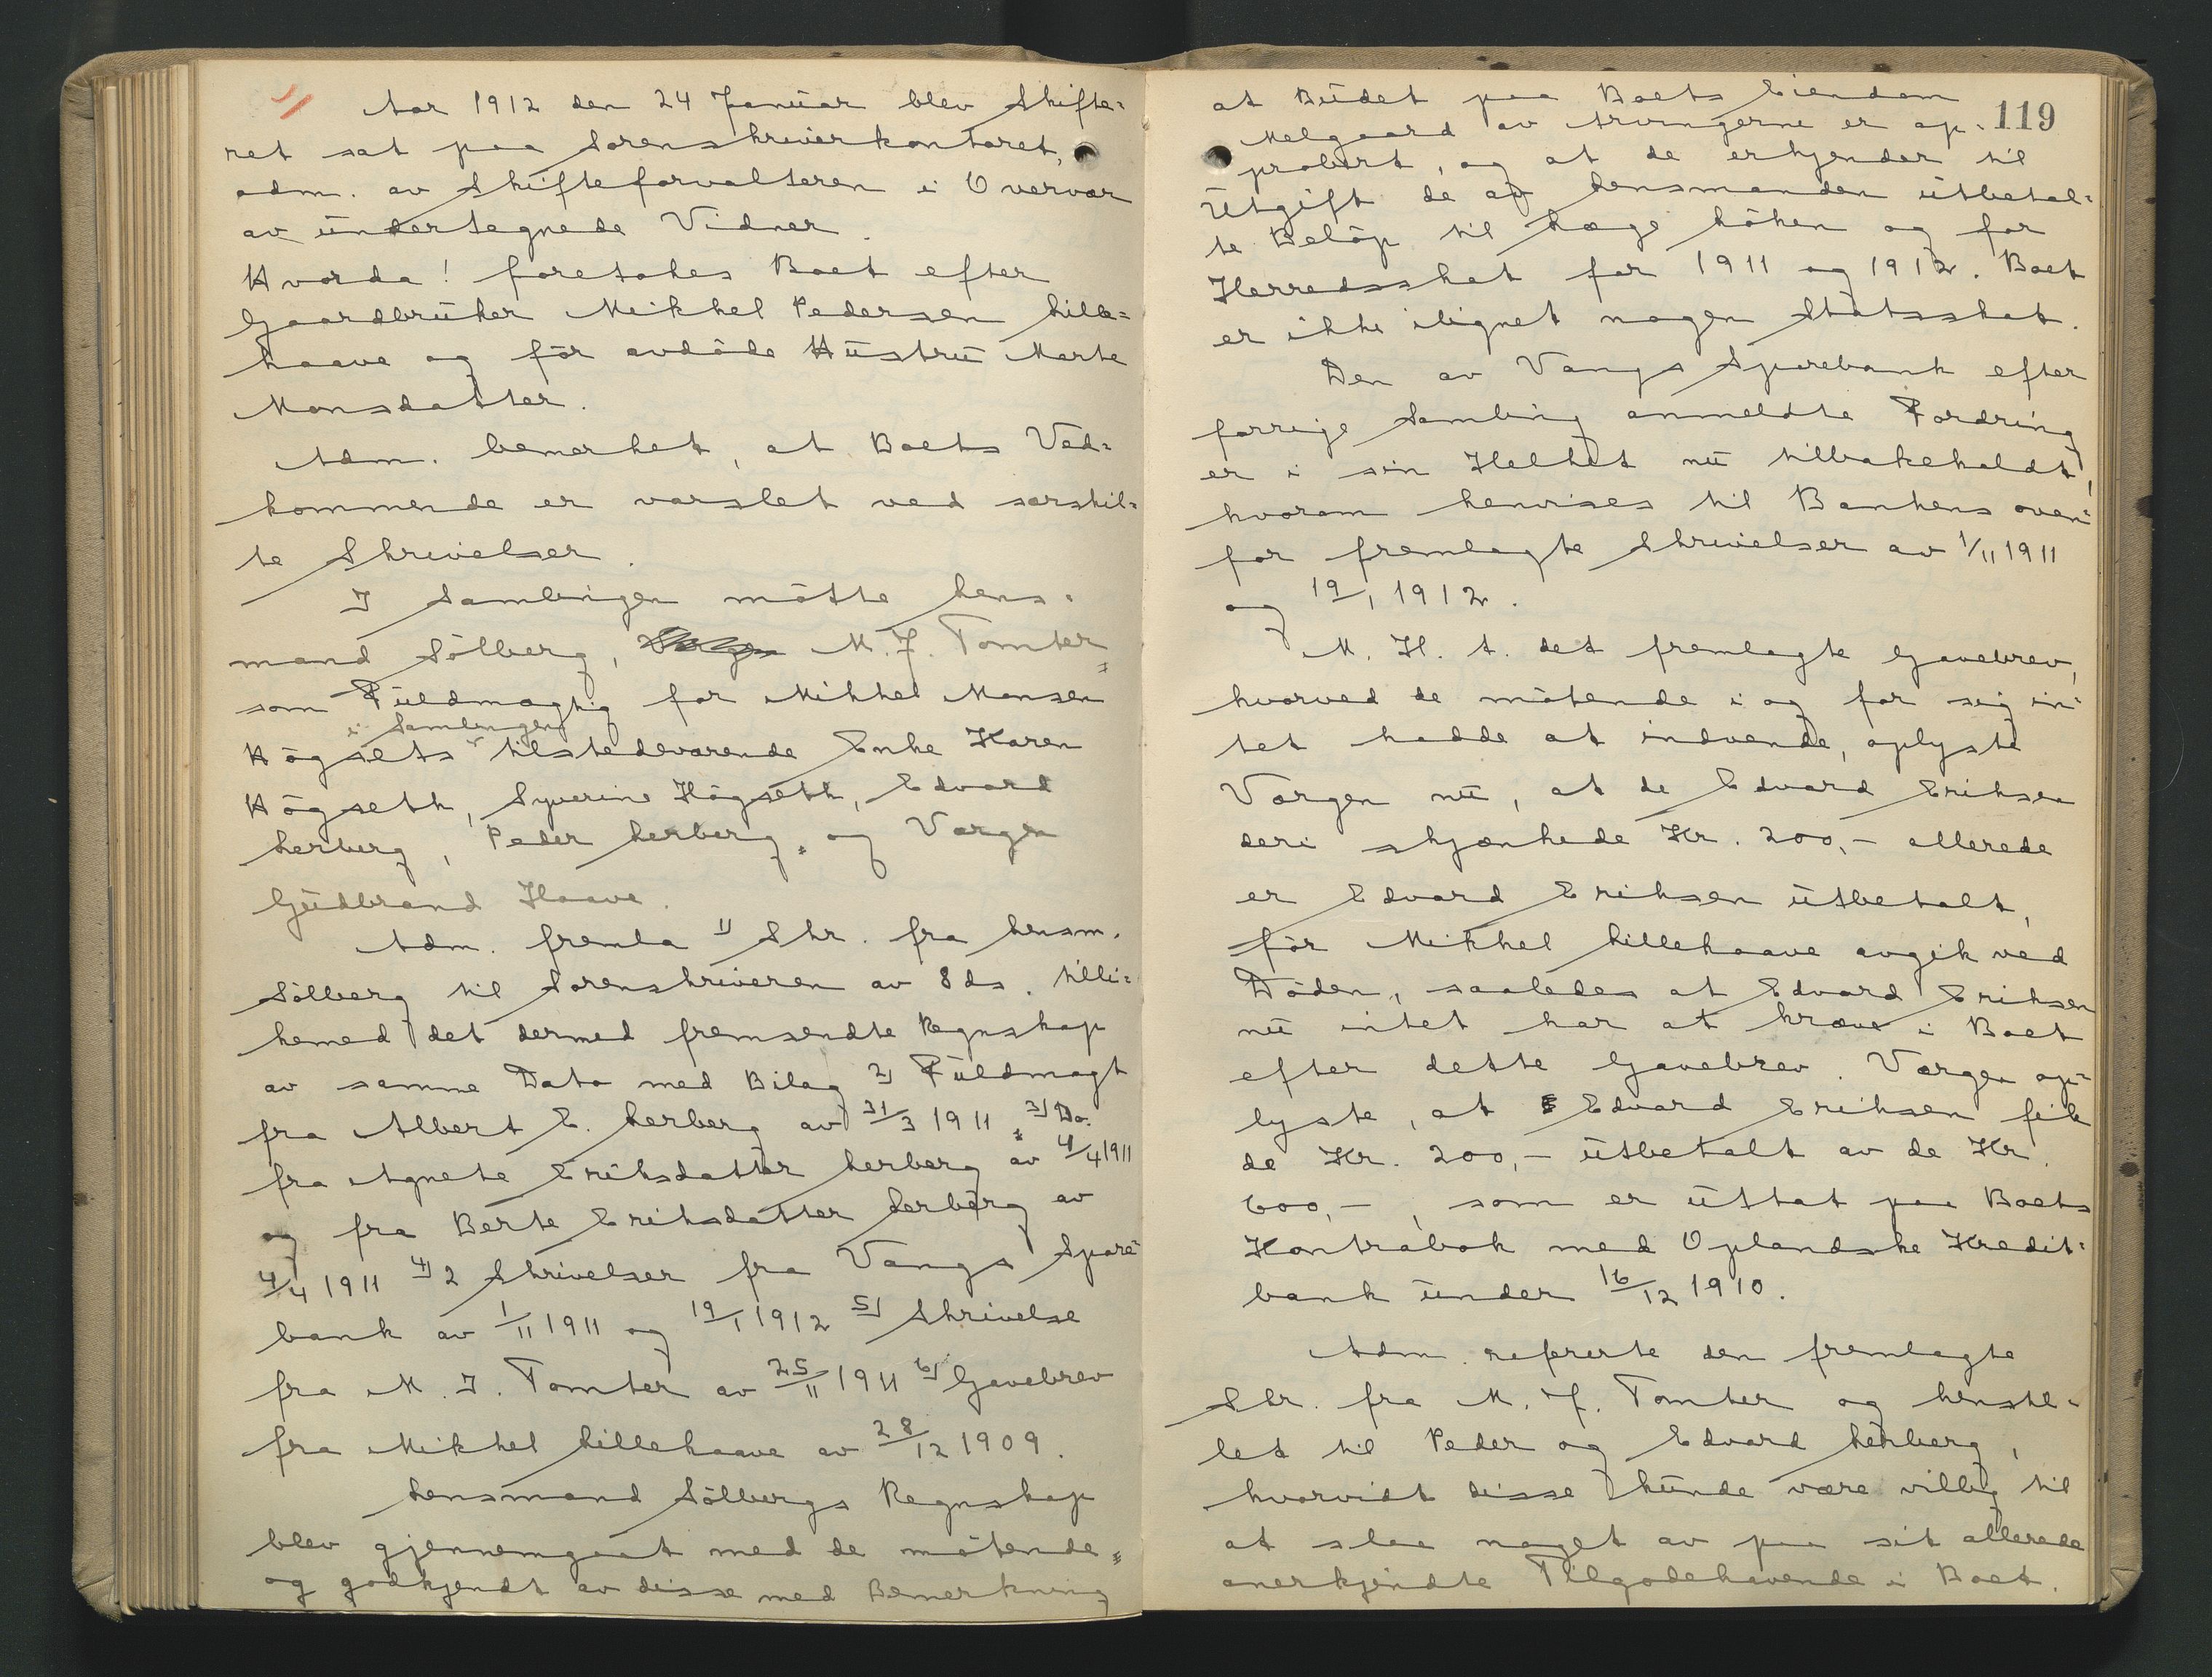 Aar 1912 den 24 Januar blev Skifte-
ret sat paa Sorenskriverkontoret,
adm. av Skifteforvalteren i Overvær
av undertegnede Vidner.
Hvorda! foretokes Boet efter
Gaardbruker Mikkel Pedersen Lille-
haave og før avdøde Hustru Marte
Monsdatter.
Adm. bemerket, at Boets Ved-
kommende er varslet ved særskil-
te Skrivelser.
I Samlingen møtte Lens-
mand Sølberg, M. J. Tomter
som Fuldmægtig for Mikkel Monsen
i Samlingen
Høgsets tilstedeværende Enke Karen
Høgseth, Syverine Høgseth, Edvard
Lerberg, Peder Lerberg, og Vergen
Gudbrand Haave.
Adm. fremla 1) Skr. fra Lensm.
Sølberg til Sorenskriveren av 8 ds. tilli-
kemed det dermed fremsendte Regnskap
av samme Dato med Bilag 2) Fuldmagt
fra Albert E. Lerberg av 31/3 1911, 3) Do.
fra Agnete Eriksdatter Lerberg av 4/4 1911
og fra Berte Eriksdatter Lerberg av
4/4 1911 4) 2 Skrivelser fra Vangs Spare-
bank av 1/11 1911 og 19/1 1912 5) Skrivelse
fra M. J. Tomter av 25/11 1911 6) Gavebrev
fra Mikkel Lillehaave av 28/12 1909.
Lensmand Sølbergs Regnskap
blev gjennemgaat med de møtende,
og godkjendt av disse med Bemerkning
119
at Budet paa Boets Eiendom
Melgaard av Arvingerne er ap-
probert, og at de erkjender til
Utgift de av Lensmanden utbetal-
te Beløp til Læge Løken og for
Herredsskat for 1911 og 1912. Boet
er ikke ilignet nogen Statsskat.
Den av Vangs Sparebank efter
forrige Samling anmeldte Fordring
er i sin Helhet nu tilbakeholdt,
hvorom henvises til Bankens oven-
for fremlagte Skrivelser av 1/11 1911
og 19/1 1912.
M. H. t. det fremlagte Gavebrev,
hvorved de møtende i og for sig in-
tet hadde at indvende, oplyste
Vergen nu, at de Edvard Eriksen
deri skjænkede Kr. 200,- allerede
er Edvard Eriksen utbetalt,
før Mikkel Lillehaave avgik ved
Døden, saaledes at Edvard Eriksen
nu intet har at kræve i Boet
efter dette Gavebrev. Vergen op-
lyste, at Edvard Eriksen fik
de Kr. 200,- utbetalt av de Kr.
600,-, som er uttat paa Boets
Kontrabok med Oplandske Kredit-
bank under 16/12 1910.
Adm. refererte den fremlagte
Skr. fra M. J. Tomter og henstil-
let til Peder og Edvard Lerberg,
hvorvidt disse kunde være villig til
at slaa noget av paa sit allerede
anerkjendte Tilgodehavende i Boet.